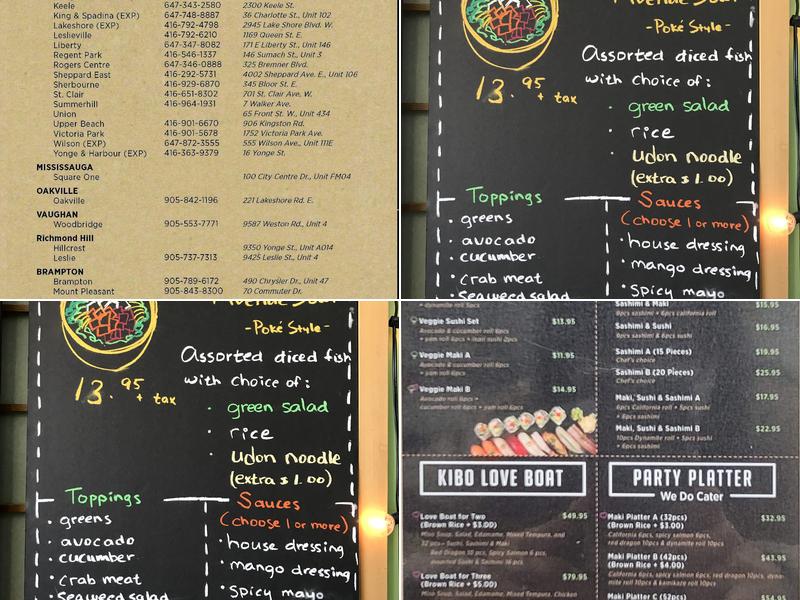 Keele 647-343-2580 2300 Keele St.
King & Spadina (EXP) 647-748-8887 36 Charlotte St., Unit 102
Lakeshore (EXP) 416-792-4798 2945 Lake Shore Blvd. W.
Leslieville 416-792-6210 1169 Queen St. E.
Liberty 647-347-8082 171 E Liberty St., Unit 146
Regent Park 416-546-1337 146 Sumach St., Unit 3
Rogers Centre 647-346-0888 325 Bremner Blvd.
Sheppard East 416-292-5731 4002 Sheppard Ave. E., Unit 106
Sherbourne 416-929-6870 345 Bloor St. E.
St. Clair 416-651-8302 701 St. Clair Ave. W.
Summerhill 416-964-1931 7 Walker Ave.
Union 65 Front St. W., Unit 434
Upper Beach 416-901-6670 906 Kingston Rd.
Victoria Park 416-901-5678 1752 Victoria Park Ave.
Wilson (EXP) 647-872-3555 555 Wilson Ave., Unit 111E
Yonge & Harbour (EXP) 416-363-9379 16 Yonge St.
MISSISSAUGA
Square One 100 City Centre Dr., Unit FM04
OAKVILLE
Oakville 905-842-1196 221 Lakeshore Rd. E.
VAUGHAN
Woodbridge 905-553-7771 9587 Weston Rd., Unit 4
Richmond Hill
Hillcrest 9350 Yonge St., Unit A014
Leslie 905-737-7313 9425 Leslie St., Unit 4
BRAMPTON
Brampton 905-789-6172 490 Chrysler Dr., Unit 47
Mount Pleasant 905-843-8300 70 Commuter Dr.
-Poké Style-
Assorted diced fish
with choice of:
13.95 + tax
· green salad
· rice
· udon noodle
(extra $1.00)
Toppings
· greens
· avocado
· cucumber
· crab meat
· seaweed salad
Sauces
(choose 1 or more)
· house dressing
· mango dressing
· spicy mayo
-Poké Style-
Assorted diced fish
with choice of:
13.95 + tax
· green salad
· rice
· udon noodle
(extra $1.00)
Toppings
· greens
· avocado
· cucumber
· crab meat
· seaweed salad
Sauces
(choose 1 or more)
· house dressing
· mango dressing
· spicy mayo
+ dynamite roll 5pcs
Veggie Sushi Set $13.95
Avocado & cucumber roll 6pcs
+ yam roll 6pcs + inari sushi 2pcs
Veggie Maki A $11.95
Avocado & cucumber roll 6pcs
+ yam roll 6pcs
Veggie Maki B $14.95
Avocado roll 6pcs +
cucumber roll 6pcs + yam roll 6pcs
Sashimi & Maki $15.95
9pcs sashimi & 6pcs california roll
Sashimi & Sushi $16.95
9pcs sashimi & 6pcs sushi
Sashimi A (15 Pieces) $19.95
Chef's choice
Sashimi B (20 Pieces) $25.95
Chef's choice
Maki, Sushi & Sashimi A $17.95
6pcs California roll + 5pcs sushi
+ 6pcs sashimi
Maki, Sushi & Sashimi B $22.95
10pcs Dynamite roll + 5pcs sushi
+ 6pcs sashimi
KIBO LOVE BOAT
Love Boat for Two $49.95
(Brown Rice + $3.00)
Miso Soup, Salad, Edamame, Mixed Tempura, and
32 pcs - Sushi, Sashimi & Maki
Red Dragon 10 pcs, Spicy Salmon 6 pcs,
Assorted Sushi & Sashimi 16 pcs
Love Boat for Three $79.95
(Brown Rice + $5.00)
Miso Soup, Salad, Edamame, Mixed Tempura, Chicken
PARTY PLATTER
We Do Cater
Maki Platter A (32pcs) $32.95
(Brown Rice + $3.00)
California 6pcs, spicy salmon 6pcs,
red dragon 10pcs & dynamite roll 10pcs
Maki Platter B (42pcs) $43.95
(Brown Rice + $4.00)
California 6pcs, spicy salmon 6pcs, red dragon 10pcs, dyna-
mite roll 10pcs & kamikaze roll 10pcs
Maki Platter C (52pcs) $54.95